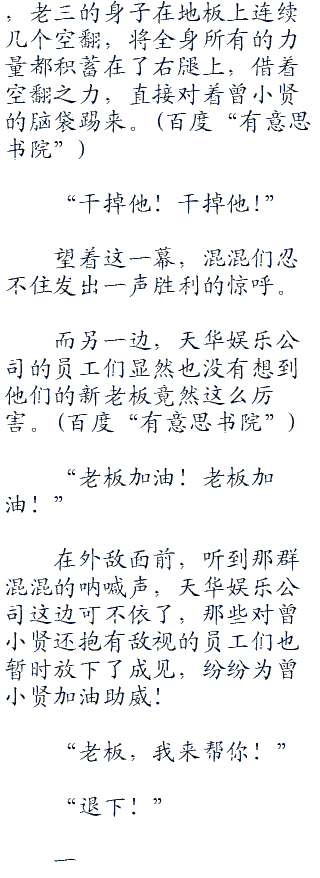 ，老三的身子在地板上连续
几个空翻，将全身所有的力
量都积蓄在了右腿上，借着
空翻之力，直接对着曾小贤
的脑袋踢来。(百度“有意思
书院”)
“干掉他！干掉他！”
望着这一幕，混混们忍
不住发出一声胜利的惊呼。
而另一边，天华娱乐公
司的员工们显然也没有想到
他们的新老板竟然这么厉
害。(百度“有意思书院”)
“老板加油！老板加
油！”
在外敌面前，听到那群
混混的呐喊声，天华娱乐公
司这边可不依了，那些对曾
小贤还抱有敌视的员工们也
暂时放下了成见，纷纷为曾
小贤加油助威！
“老板，我来帮你！”
“退下！”
一